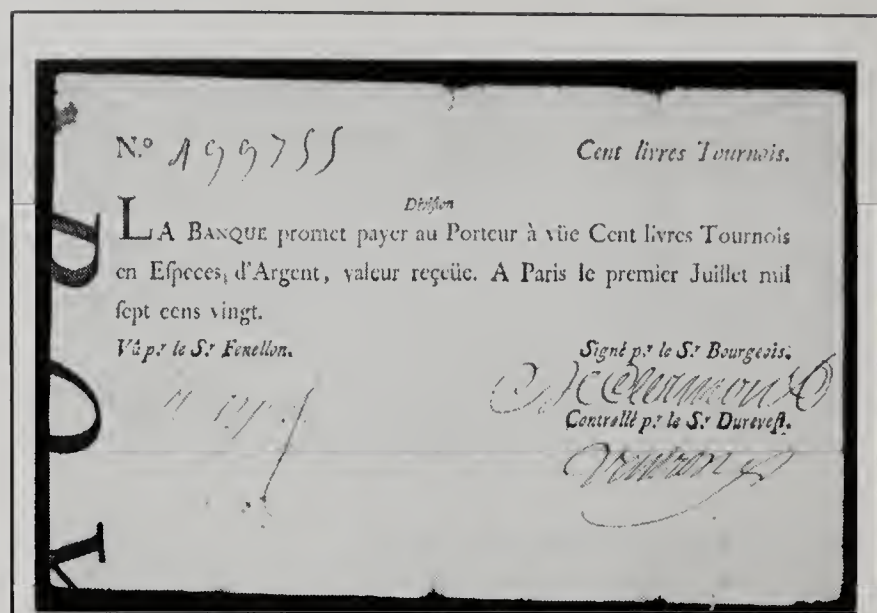 N.º 199755 Cent livres Tournois.
Division
LA BANQUE promet payer au Porteur à vûe Cent livres Tournois
en Eſpeces, d'Argent, valeur reçeüe. A Paris le premier Juillet mil
ſept cens vingt.
Vû p.r le S.r Fenellon. Signé p.r le S.r Bourgeois.
Controllé p.r le S.r Dureveſt.